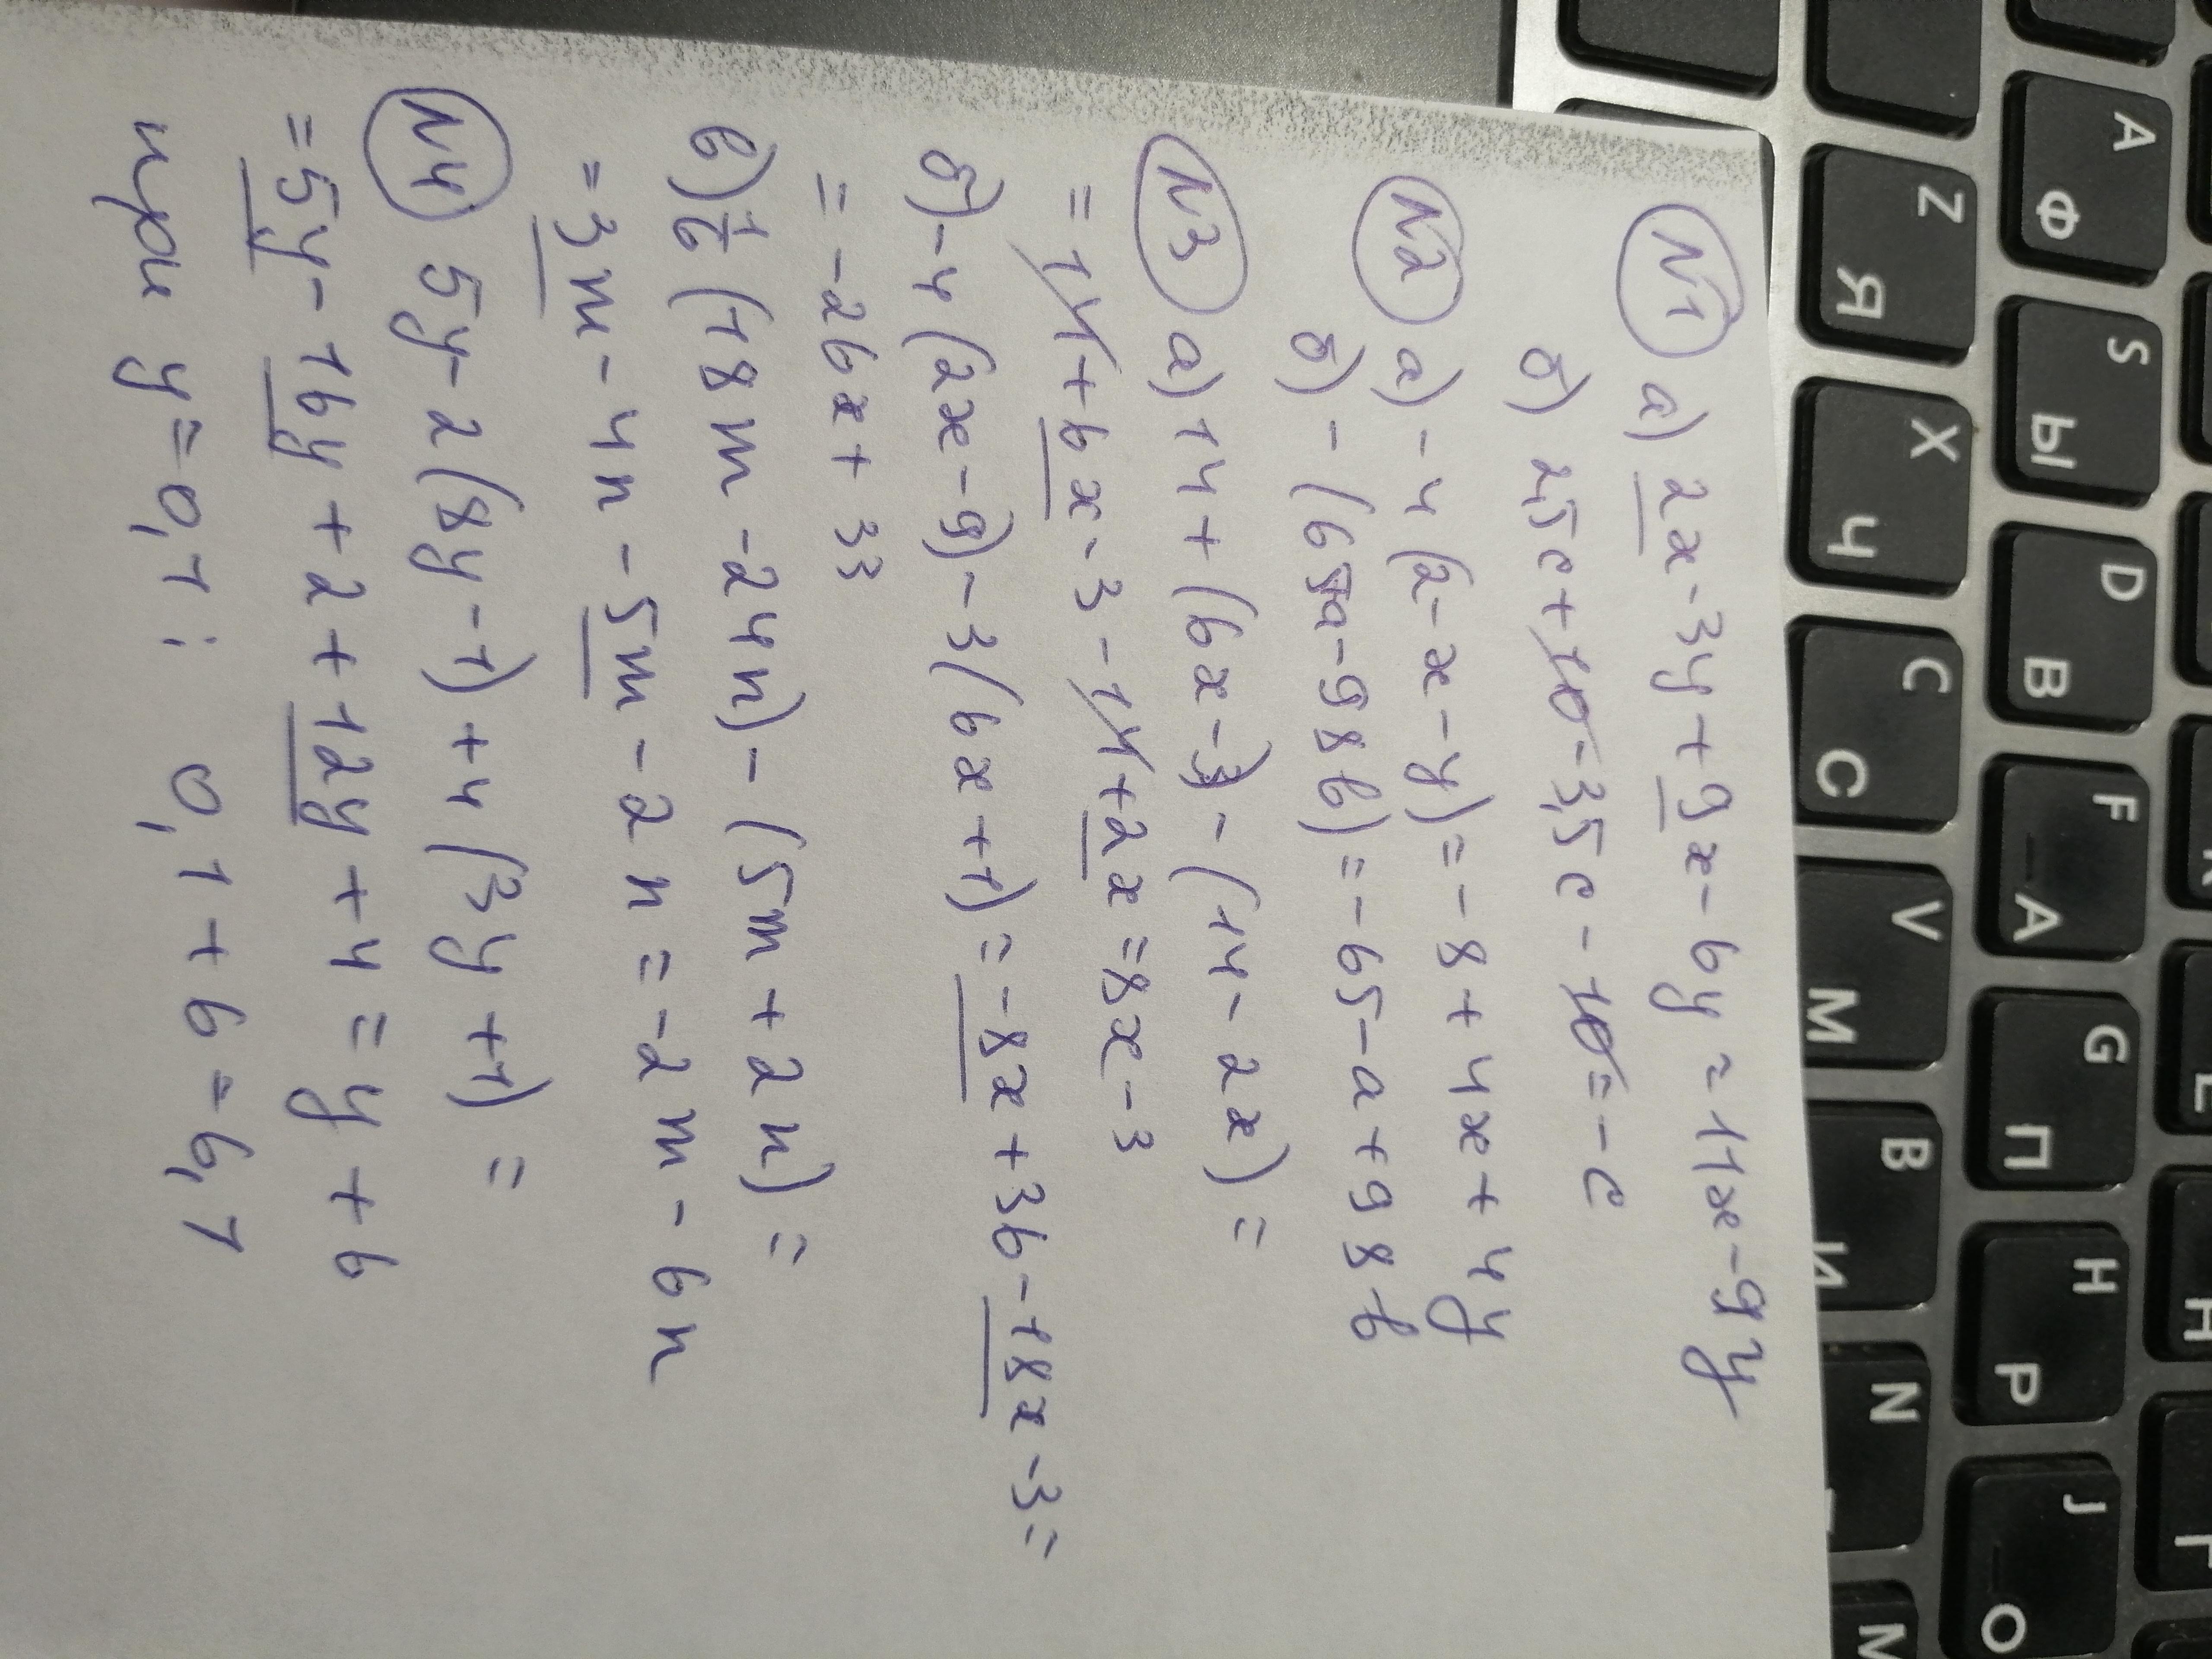 N1 a) 2x-3y+9x-6y=11x-9y
б) 2,5c+10-3,5c-10=-c
N2 a) -4(2-x-y)=-8+4x+4y
б) -(65a-98b)=-65-a+98b
N3 a) 14+(6x-3)-(14-2x)=
=14+6x-3-14+2x=8x-3
б) -4(2x-9)-3(6x+1)=-8x+36-18x-3=
=-26x+33
в) 1/6(18m-24n)-(5m+2n)=
=3m-4n-5m-2n=-2m-6n
N4 5y-2(8y-1)+4(3y+1)=
=5y-16y+2+12y+4=y+6
при y=0,1: 0,1+6=6,1
A Ф
S Ы
D В
F А
G П
H Р
J О
Z Я
X Ч
C С
V М
B И
N